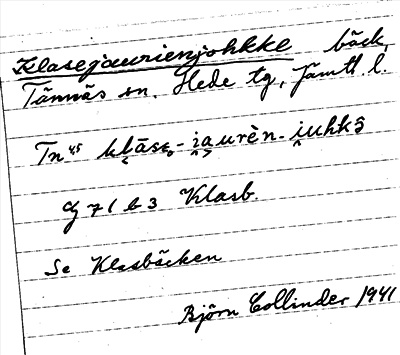 Klasejaurienjohkke bäck,
Tännäs sn. Hede tg, Jämtl l.
Tn 45 klāse-i̯a̯urèn-i̯uhkə̑
G 71 b 3 Klasb.
Se Klasbäcken
Björn Collinder 1941